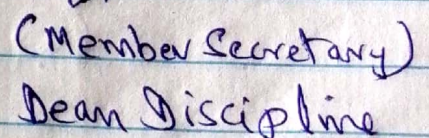 (Member Secretary)
Dean Discipline